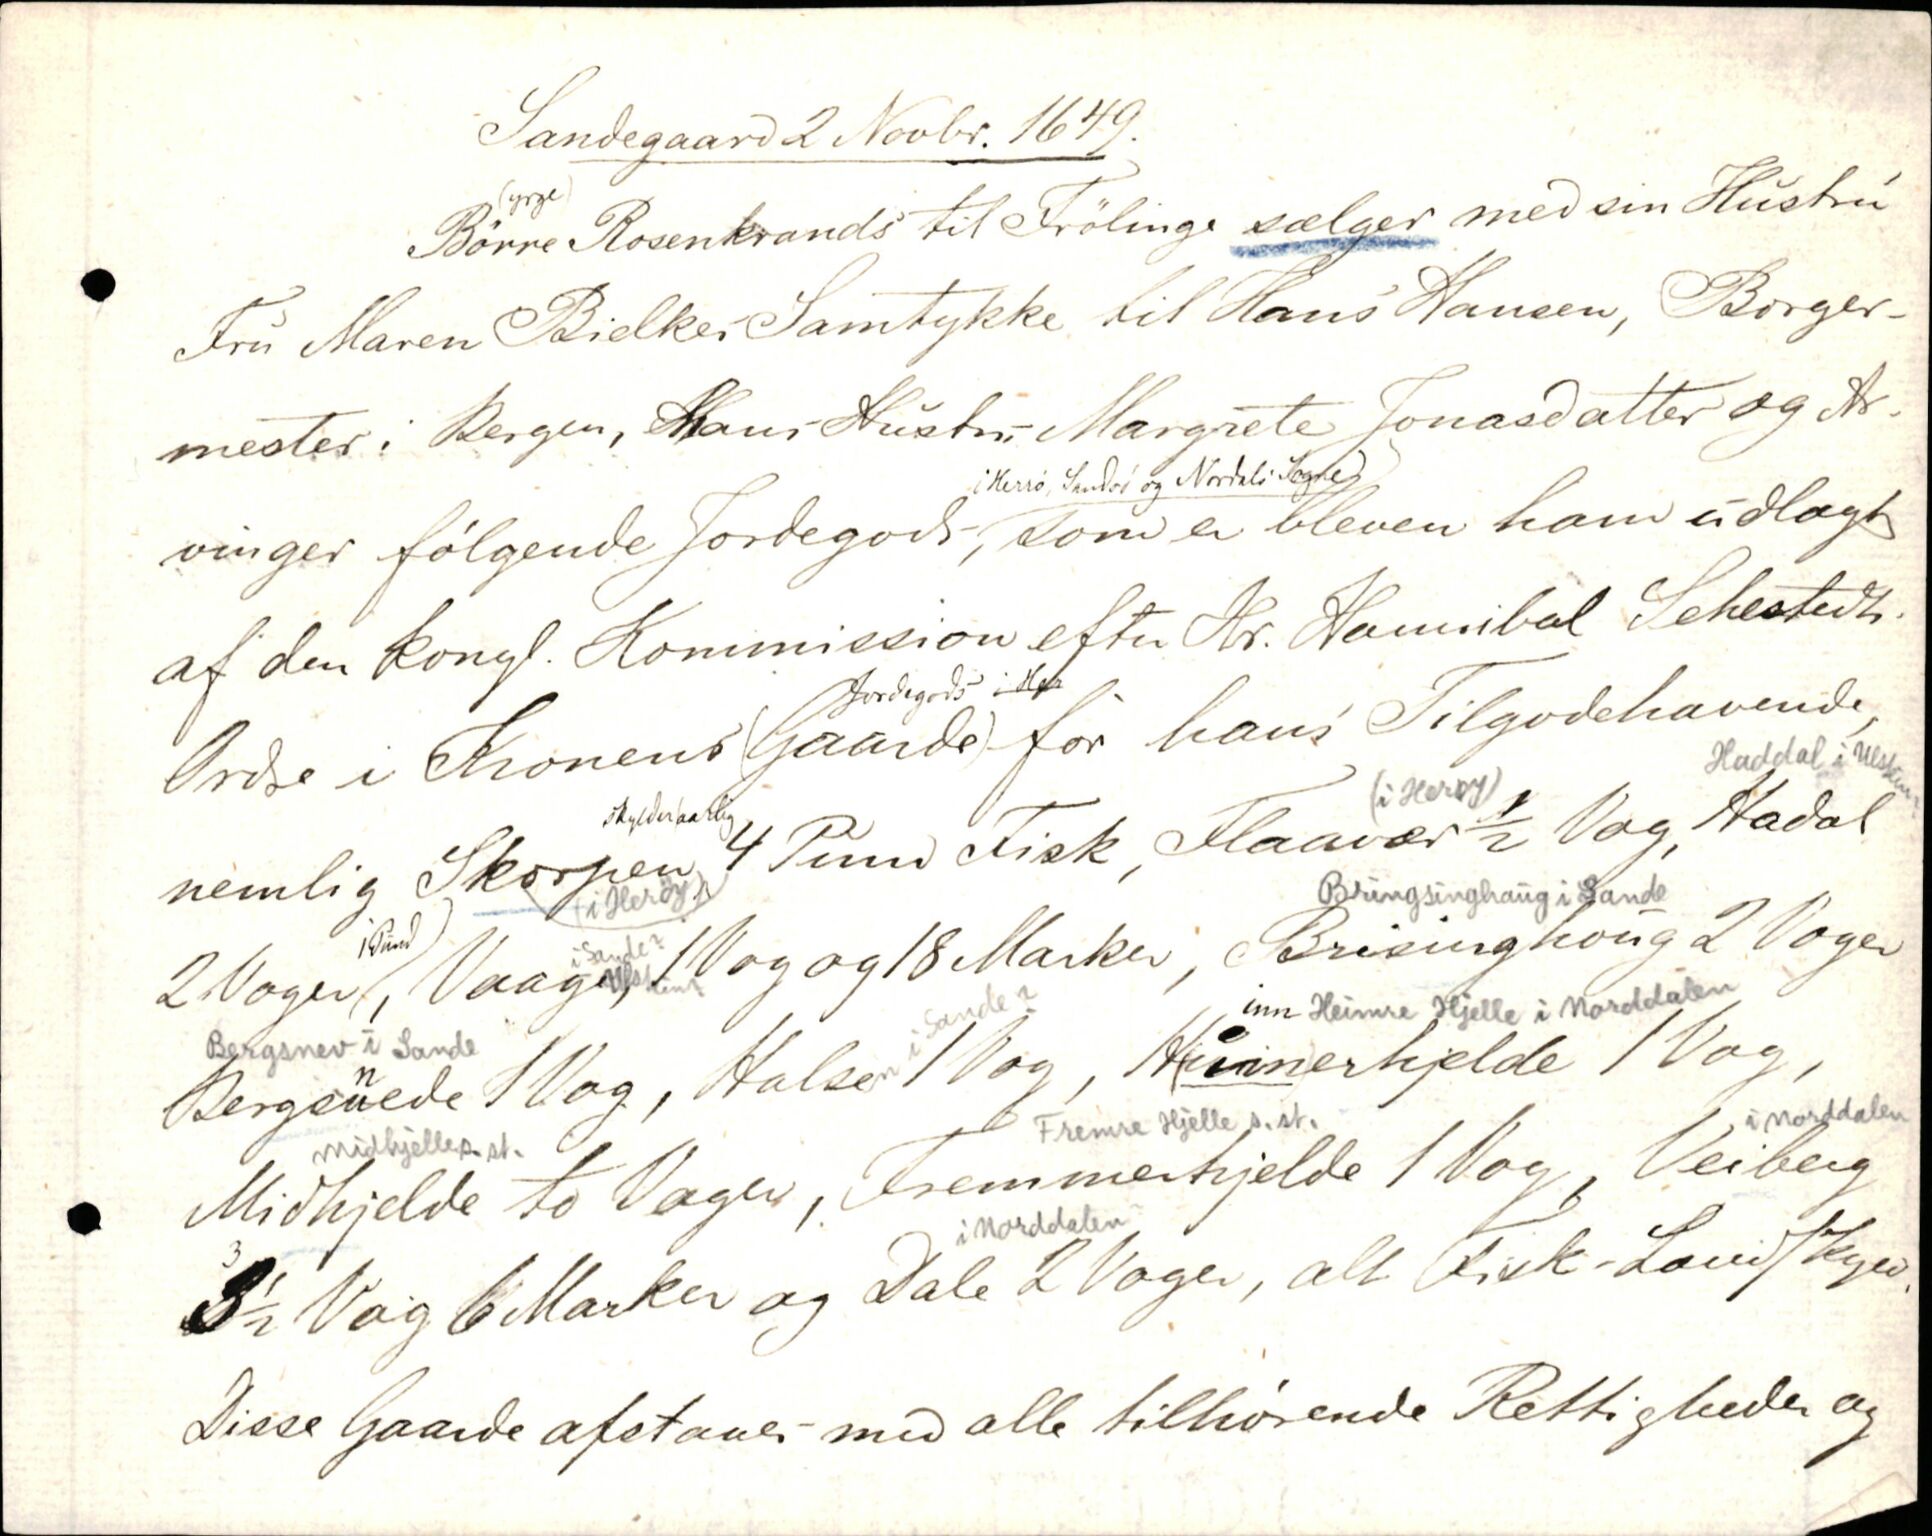 Sandegaard 2 Novbr. 1649.
(yrge)
Börre Rosenkrands til Frölinge sælger med sin Hustru
Fru Maren Bielkes Samtykke til Hans Hansen, Borger-
mester i Bergen, Hans Hustru Margrete Jonasdatter og Ar-
i Herrö, Sandös og Nordals Sogne)
vinger følgende Jordegods, som er bleven ham udlagt
af den kongl. Kommission efter Hr. Hannibal Sehesteds
Jordegods i Her
Ordre i Kronens (Gaarde) for hans Tilgodehavende,
Haddal i Ulstein
skylder aarlig (i Herøy)
nemlig Skorpen 4 Pund Fisk, Flaavær 1/2 Vog, Hadal
(i Herøy) Bringsinghaug i Sande
1 Pund) i Sande? Ulstein?
2 Voger, Vaage, 1 Vog og 18 Marker, Brisinghoug 2 Voger
Bergsnev i Sande i Sande? inn Heimre Hjelle i Norddalen
n
Bergsnede 1 Vog, Halsen 1 Vog, (Huinnerhjelde 1 Vog,
Midhjelle s. st. Fremre Hjelle s. st. i Norddalen
Midhjelde to Voger, Fremmerhjelde 1 Vog, Veiberg
3 i Norddalen
3 1/2 Vog 6 Marker og Dale 2 Voger, alt Fisk-Landskyld.
Disse Gaarde afstaaes med alle tilhørende Rettigheder og